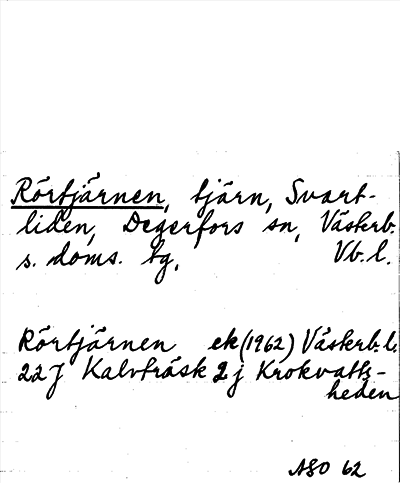 Rörtjärnen, tjärn, Svart-
liden, Degerfors sn, Västerb.
s. doms. tg, Vb. l.
Rörtjärnen ek (1962) Västerb. l.
22 J Kalvträsk 2 j Krokvatts-
heden
ASO 62